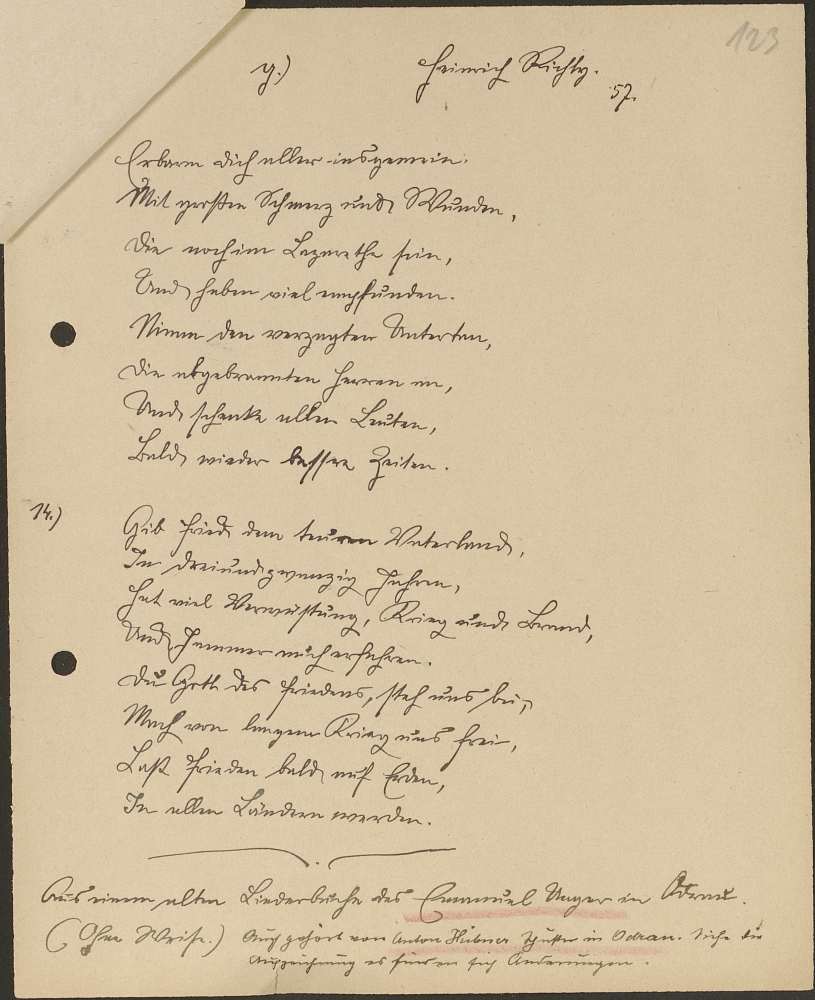 123
y.) Heinrich Richly.
57.
Erbarm dich aller insgemein.
Mit großen Schmerz und Wunden,
Die noch im Lazarethe sein,
Und haben viel empfunden.
Nimm den verzagten Untertan,
Die abgebrannten Herren an,
Und schenke allen Leuten,
Bald wieder bessre Zeiten.
14.) Gib Fried dem teuren Vaterland,
In dreiundzwanzig Jahren,
Hat viel Verwüstung, Krieg und Brand,
Und Jammer auch erfahren.
Du Gott des Friedens, steh uns bei,
Mach von langem Krieg uns frei,
Laß Frieden bald auf Erden,
In allen Ländern werden.
Aus einem alten Liederbuche des Emanuel Unger in Odrau.
(Ohne Weise.) Auch gehört von Anton Hübner in Odrau. Siehe die
Aufzeichnung es finden sich Änderungen.